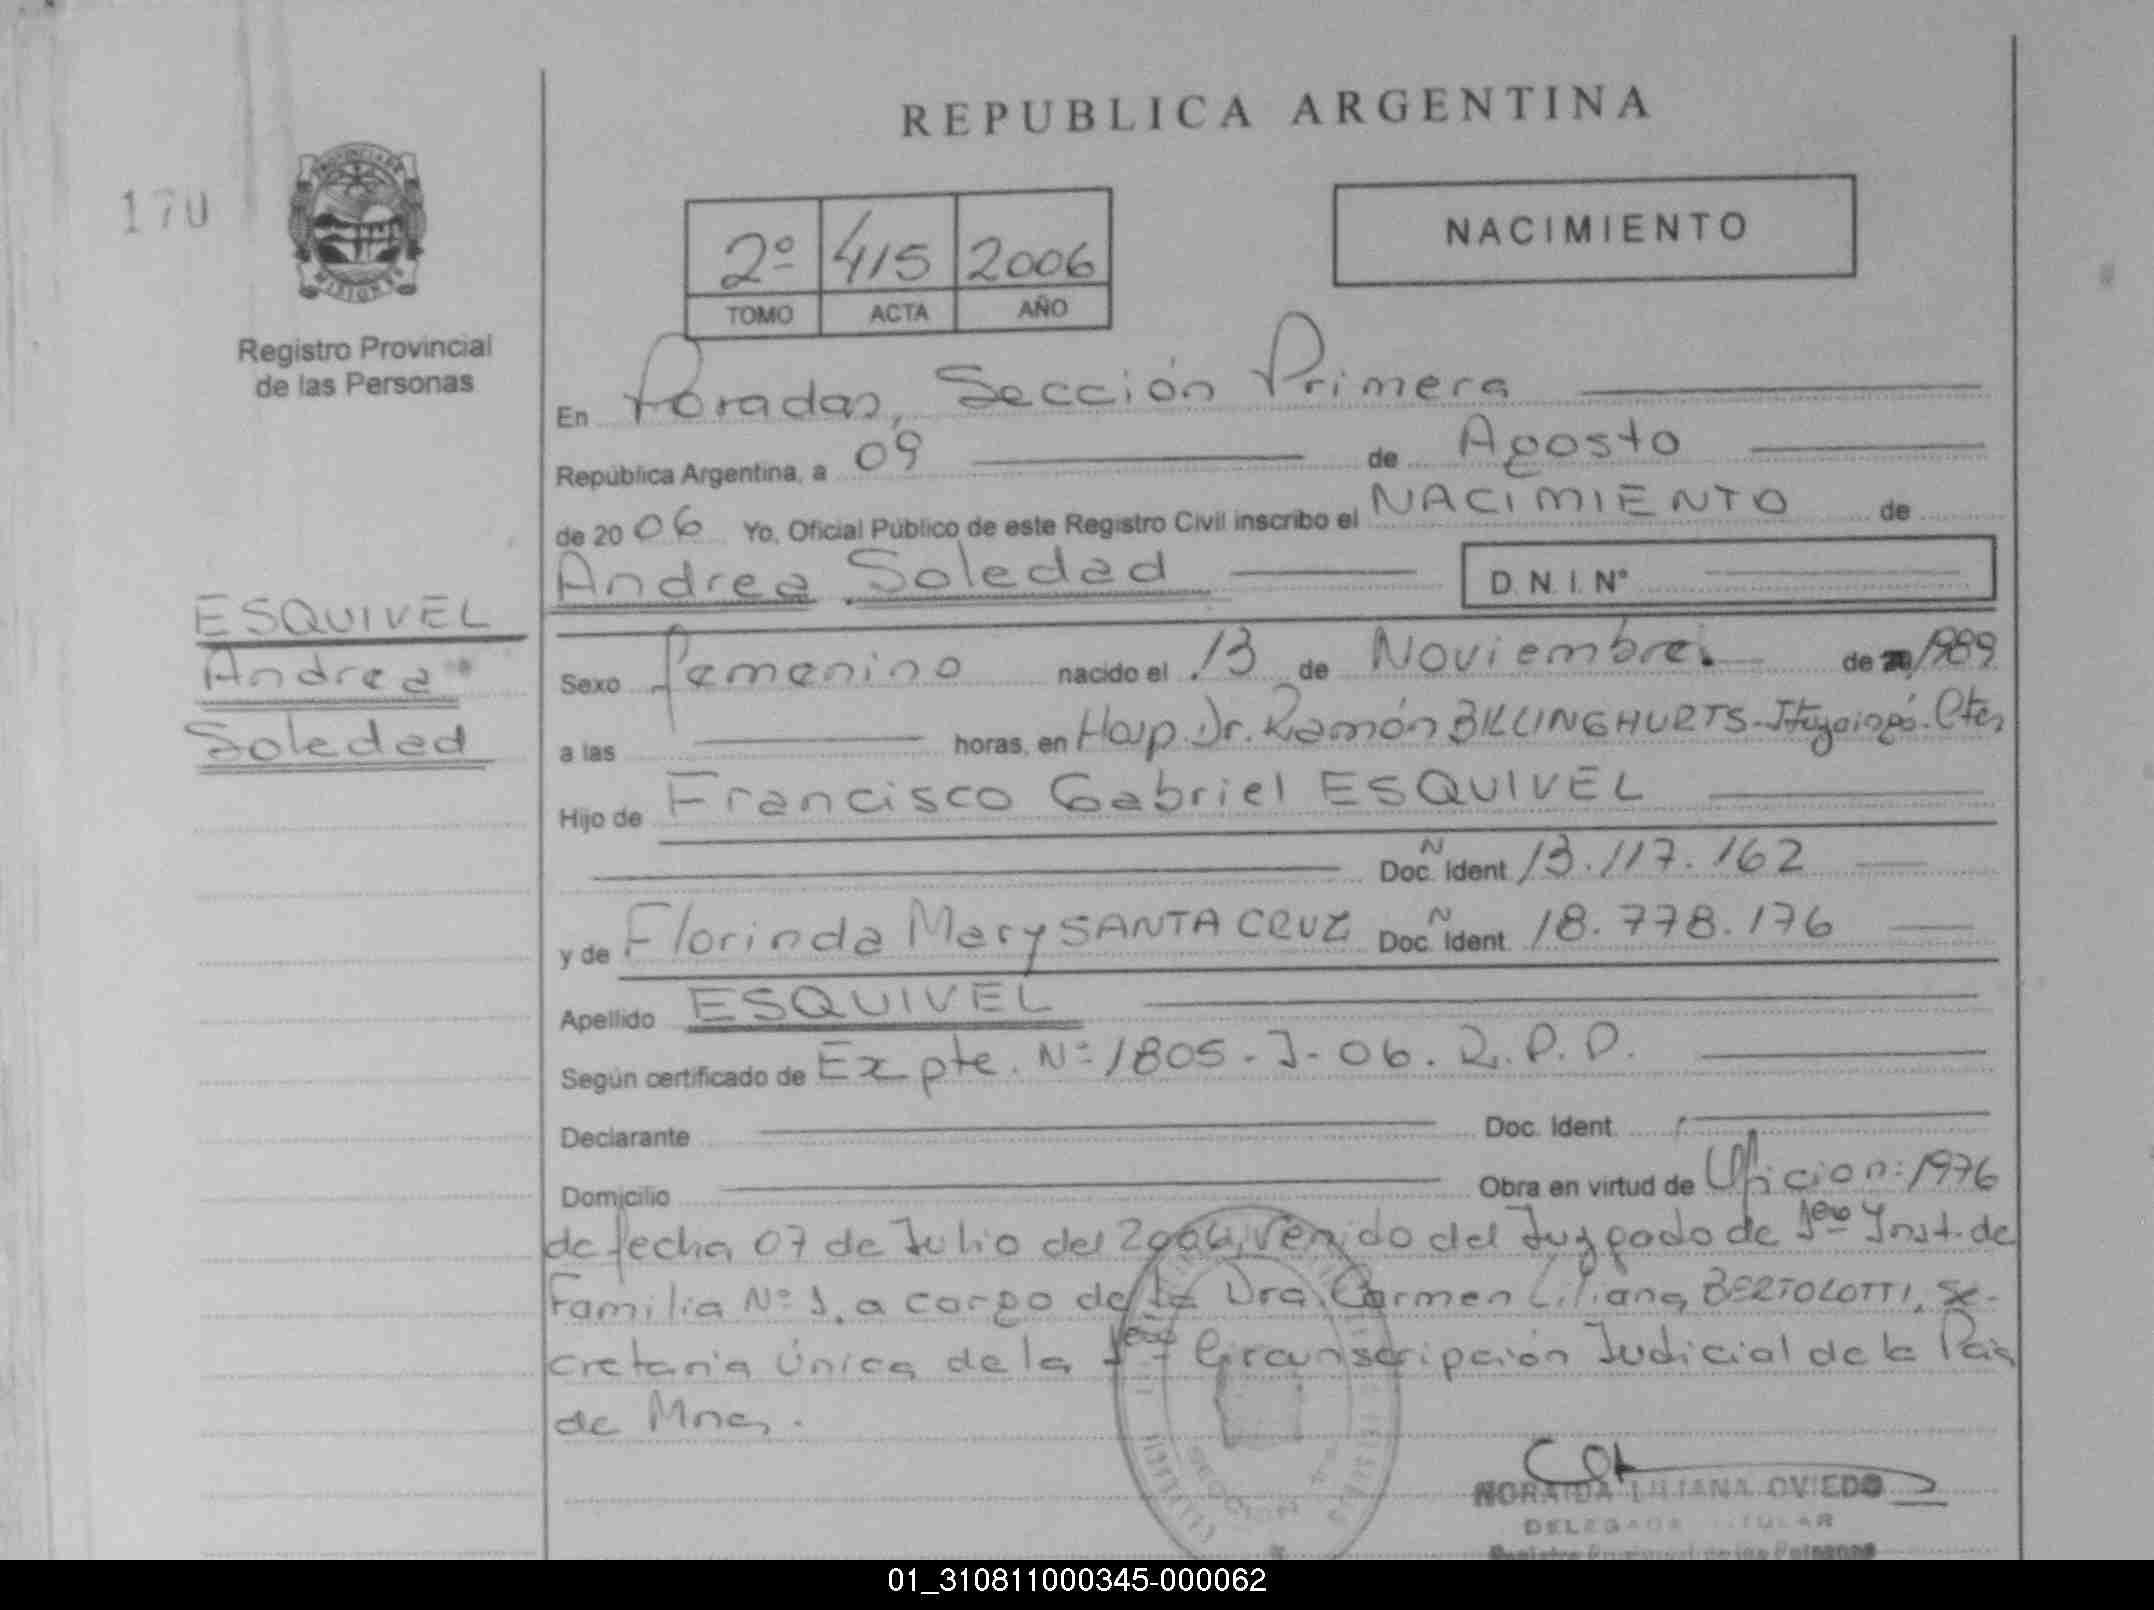 REPUBLICA ARGENTINA
170
PROVINCIA DE
MISIONES
Registro Provincial
de las Personas
2º 415 2006
TOMO ACTA AÑO
NACIMIENTO
En Posadas, Sección Primera
República Argentina, a 09 de Agosto
de 2006 Yo, Oficial Público de este Registro Civil inscribo el NACIMIENTO de
Andrea Soledad D.N.I. Nº
ESQUIVEL
Andrea
Soledad
Sexo femenino nacido el 13 de Noviembre de 1989
a las horas, en Hosp. Dr. Ramón BILLINGHURTS - Ituzaingó. Ctes
Hijo de Francisco Gabriel ESQUIVEL
Doc. Ident N 13.117.162
y de Florinda Mary SANTA CRUZ Doc. Ident. N 18.778.176
Apellido ESQUIVEL
Según certificado de Expte. Nº 1805-J-06. R.P.P.
Declarante Doc. Ident.
Domicilio Obra en virtud de Oficio n: 1976
de fecha 07 de Julio del 2006, venido del Juzgado de 1era Inst. de
Familia Nº 1, a cargo de la Dra. Carmen Liliana BERTOLOTTI, Se-
cretaria única de la 1era Circunscripción Judicial de la Pcia
de Mnes.
SECCION 1ª
NORAIDA LILIANA OVIEDO
DELEGADA TITULAR
Registro Provincial de las Personas
01_310811000345-000062